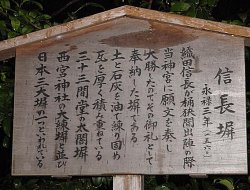 信長塀
永禄三年(一五六〇)
織田信長が桶狭間出陣の際
当神宮に願文を奏し
大勝したのでその御礼として
奉納した塀である
土と石灰を油で練り固め
瓦を厚く積み重ねている
三十三間堂の太閤塀
西宮神社の大練塀と並び
日本三大塀の一といわれている